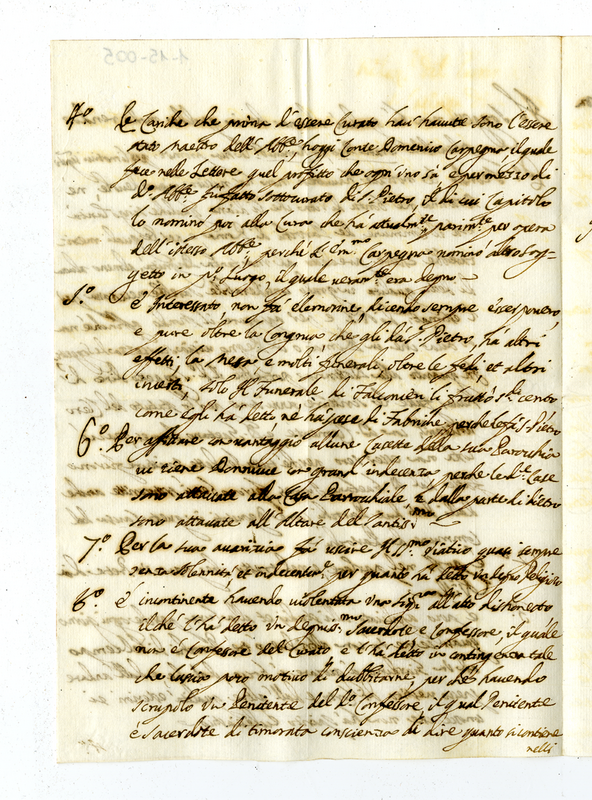 1-15-005
4° Le Cariche che prima d'essere Curato ha havute sono l'essere
stato maestro dell'Abb.e hoggi Conte Domenico Carpegna il quale
fece nelle lettere quel profitto che ogni uno sà e per mezzo di
d.o Abb.e fù fatto sottocurato di S. Pietro, il di cui Capitolo
lo nominò poi alla Cura che hà attualm.te per opera
dell'istesso Abb.e perché l'Em.mo Carpegna nominò altro sog-
getto in p.o luogo, il quale veram.te era degno
5.° è Interessato, non fà elemosine dicendo sempre esser povero
e pure oltre la Congrua che gli dà S. Pietro, hà altri
effetti, la messa, e molti funerali, oltre le fedi, et altri
incerti, solo il Funerale di Falconieri li fruttò cento
come egli hà detto, né hà spese di Fabriche perche le fà S. Pietro
6° Per affittare con vantaggio alcune Casette della sua Parochia
vi tiene Donnicce con grand'indecenza, perche le d.e Case
sono attaccate alla Casa Parrochiale, e dalla parte di dietro
sono attaccate all'Altare del Santis.mo
7.° Per la sua avarizia fà uscire il S.mo Viatico quasi sempre
senza solennità et indecentem.e per quanto hà detto un degno Religioso
8° è incontinente havendo violentata una all'atto dishonesto
il che l'hà detto un degniss.mo Sacerdote e Confessore, il quale
non è Confessore del Curato e l'hà detto in contingenza tale
che lascia poco motivo di dubbitarne, per che havendo
scrupolo un Penitente del d.o Confessore, il qual Penitente
è Sacerdote di timorata conscienza di dire quanto si contiene
nelli